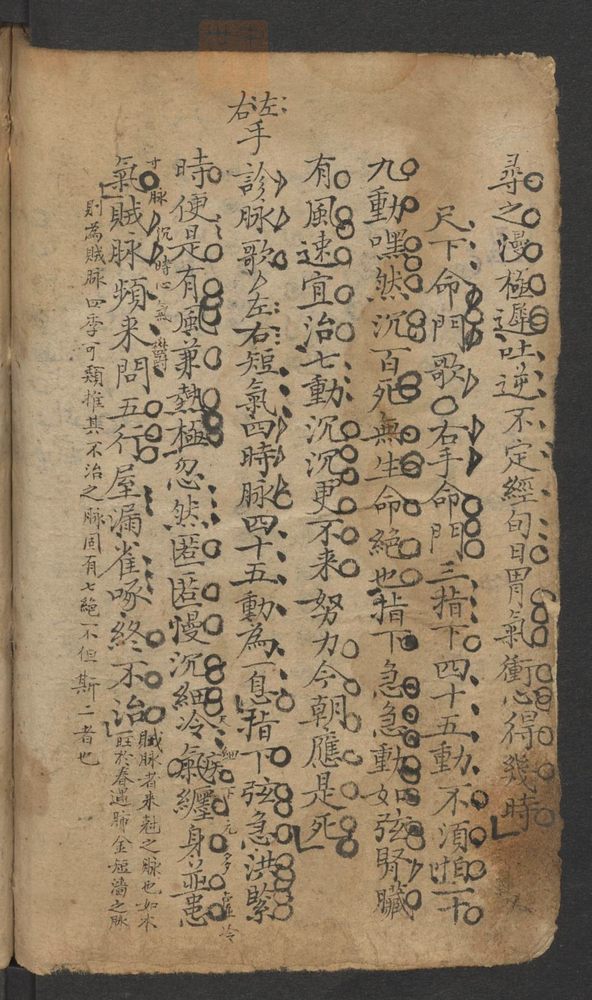 尋之漫極遲吐逆不定經旬日胃氣衝心得幾時
尺下命門歌○右手命門三指下四十五動不須怕一十
九動嘿然沉百死無生命絶也指下急急動如弦腎臟
有風速宜治七動沉沉更不來努力今朝應是死
左右手診脉歌 左右短氣四時脉四十五動為一息指下弦急洪緊
時便是有風兼熱極忽然匿匿慢沉細冷氣纏身並患
氣賊脉頻来問五行屋漏雀啄終不治
寸脉沉時心氣
賊脉者来尅之脉也如木
旺於春遇肺金短濇之脉
則為賊脉四季可類推其不治之脉固有七絶不但斯二者也